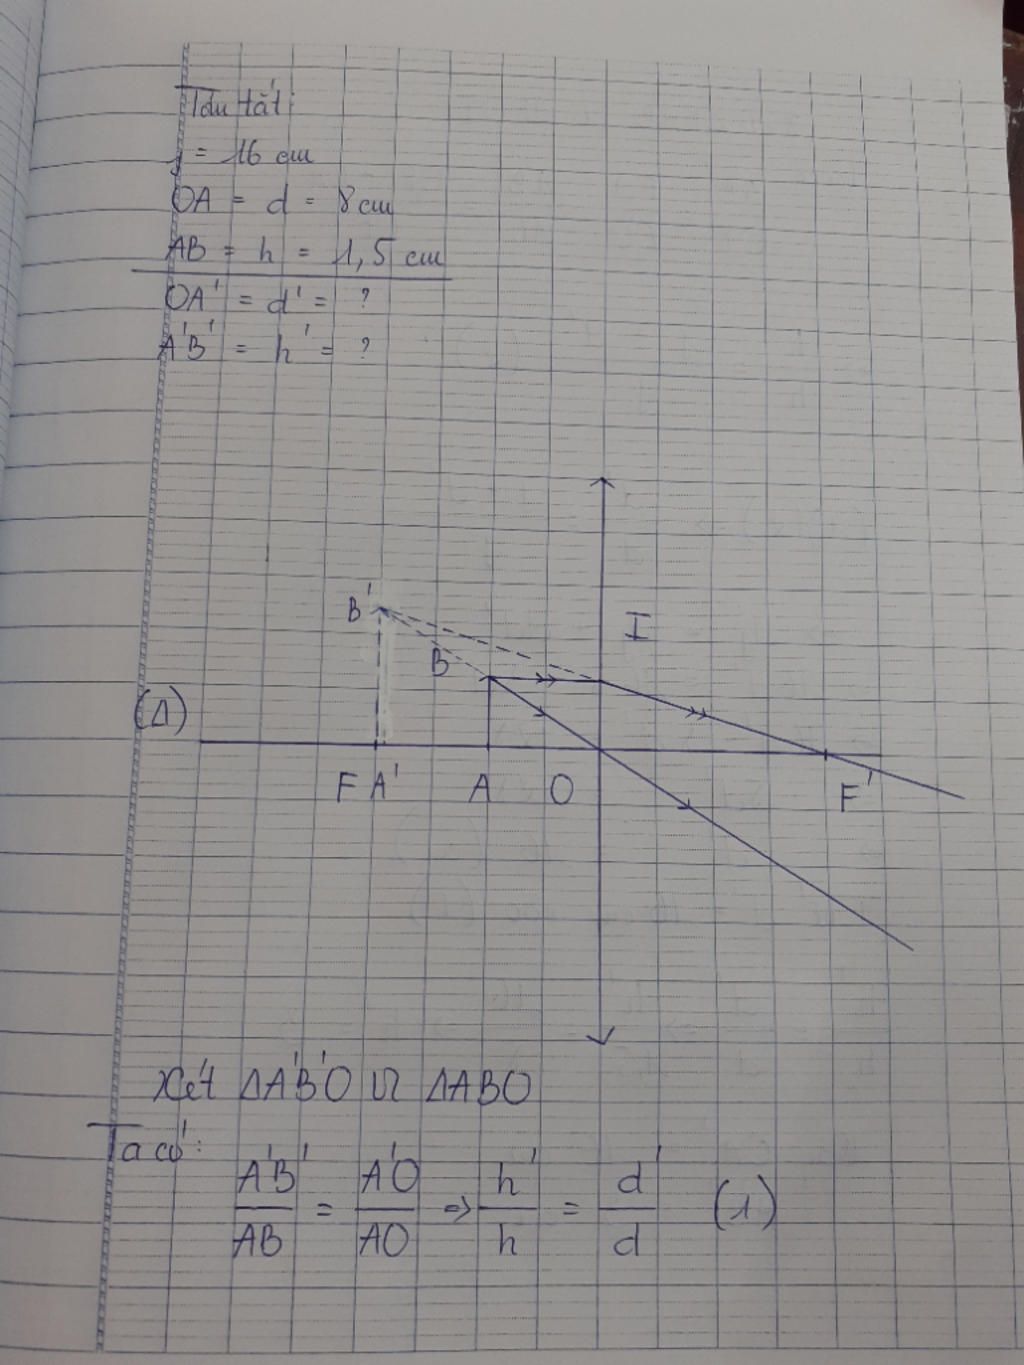 Tóm tắt:
f = 16 cm
OA = d = 8 cm
AB = h = 1,5 cm
OA' = d' = ?
A'B' = h' = ?
I
B'
B
(Δ)
F A' A O F'
Xét ΔA'B'O ᔕ ΔABO
Ta có:
A'B'/AB = A'O/AO => h'/h = d'/d (1)